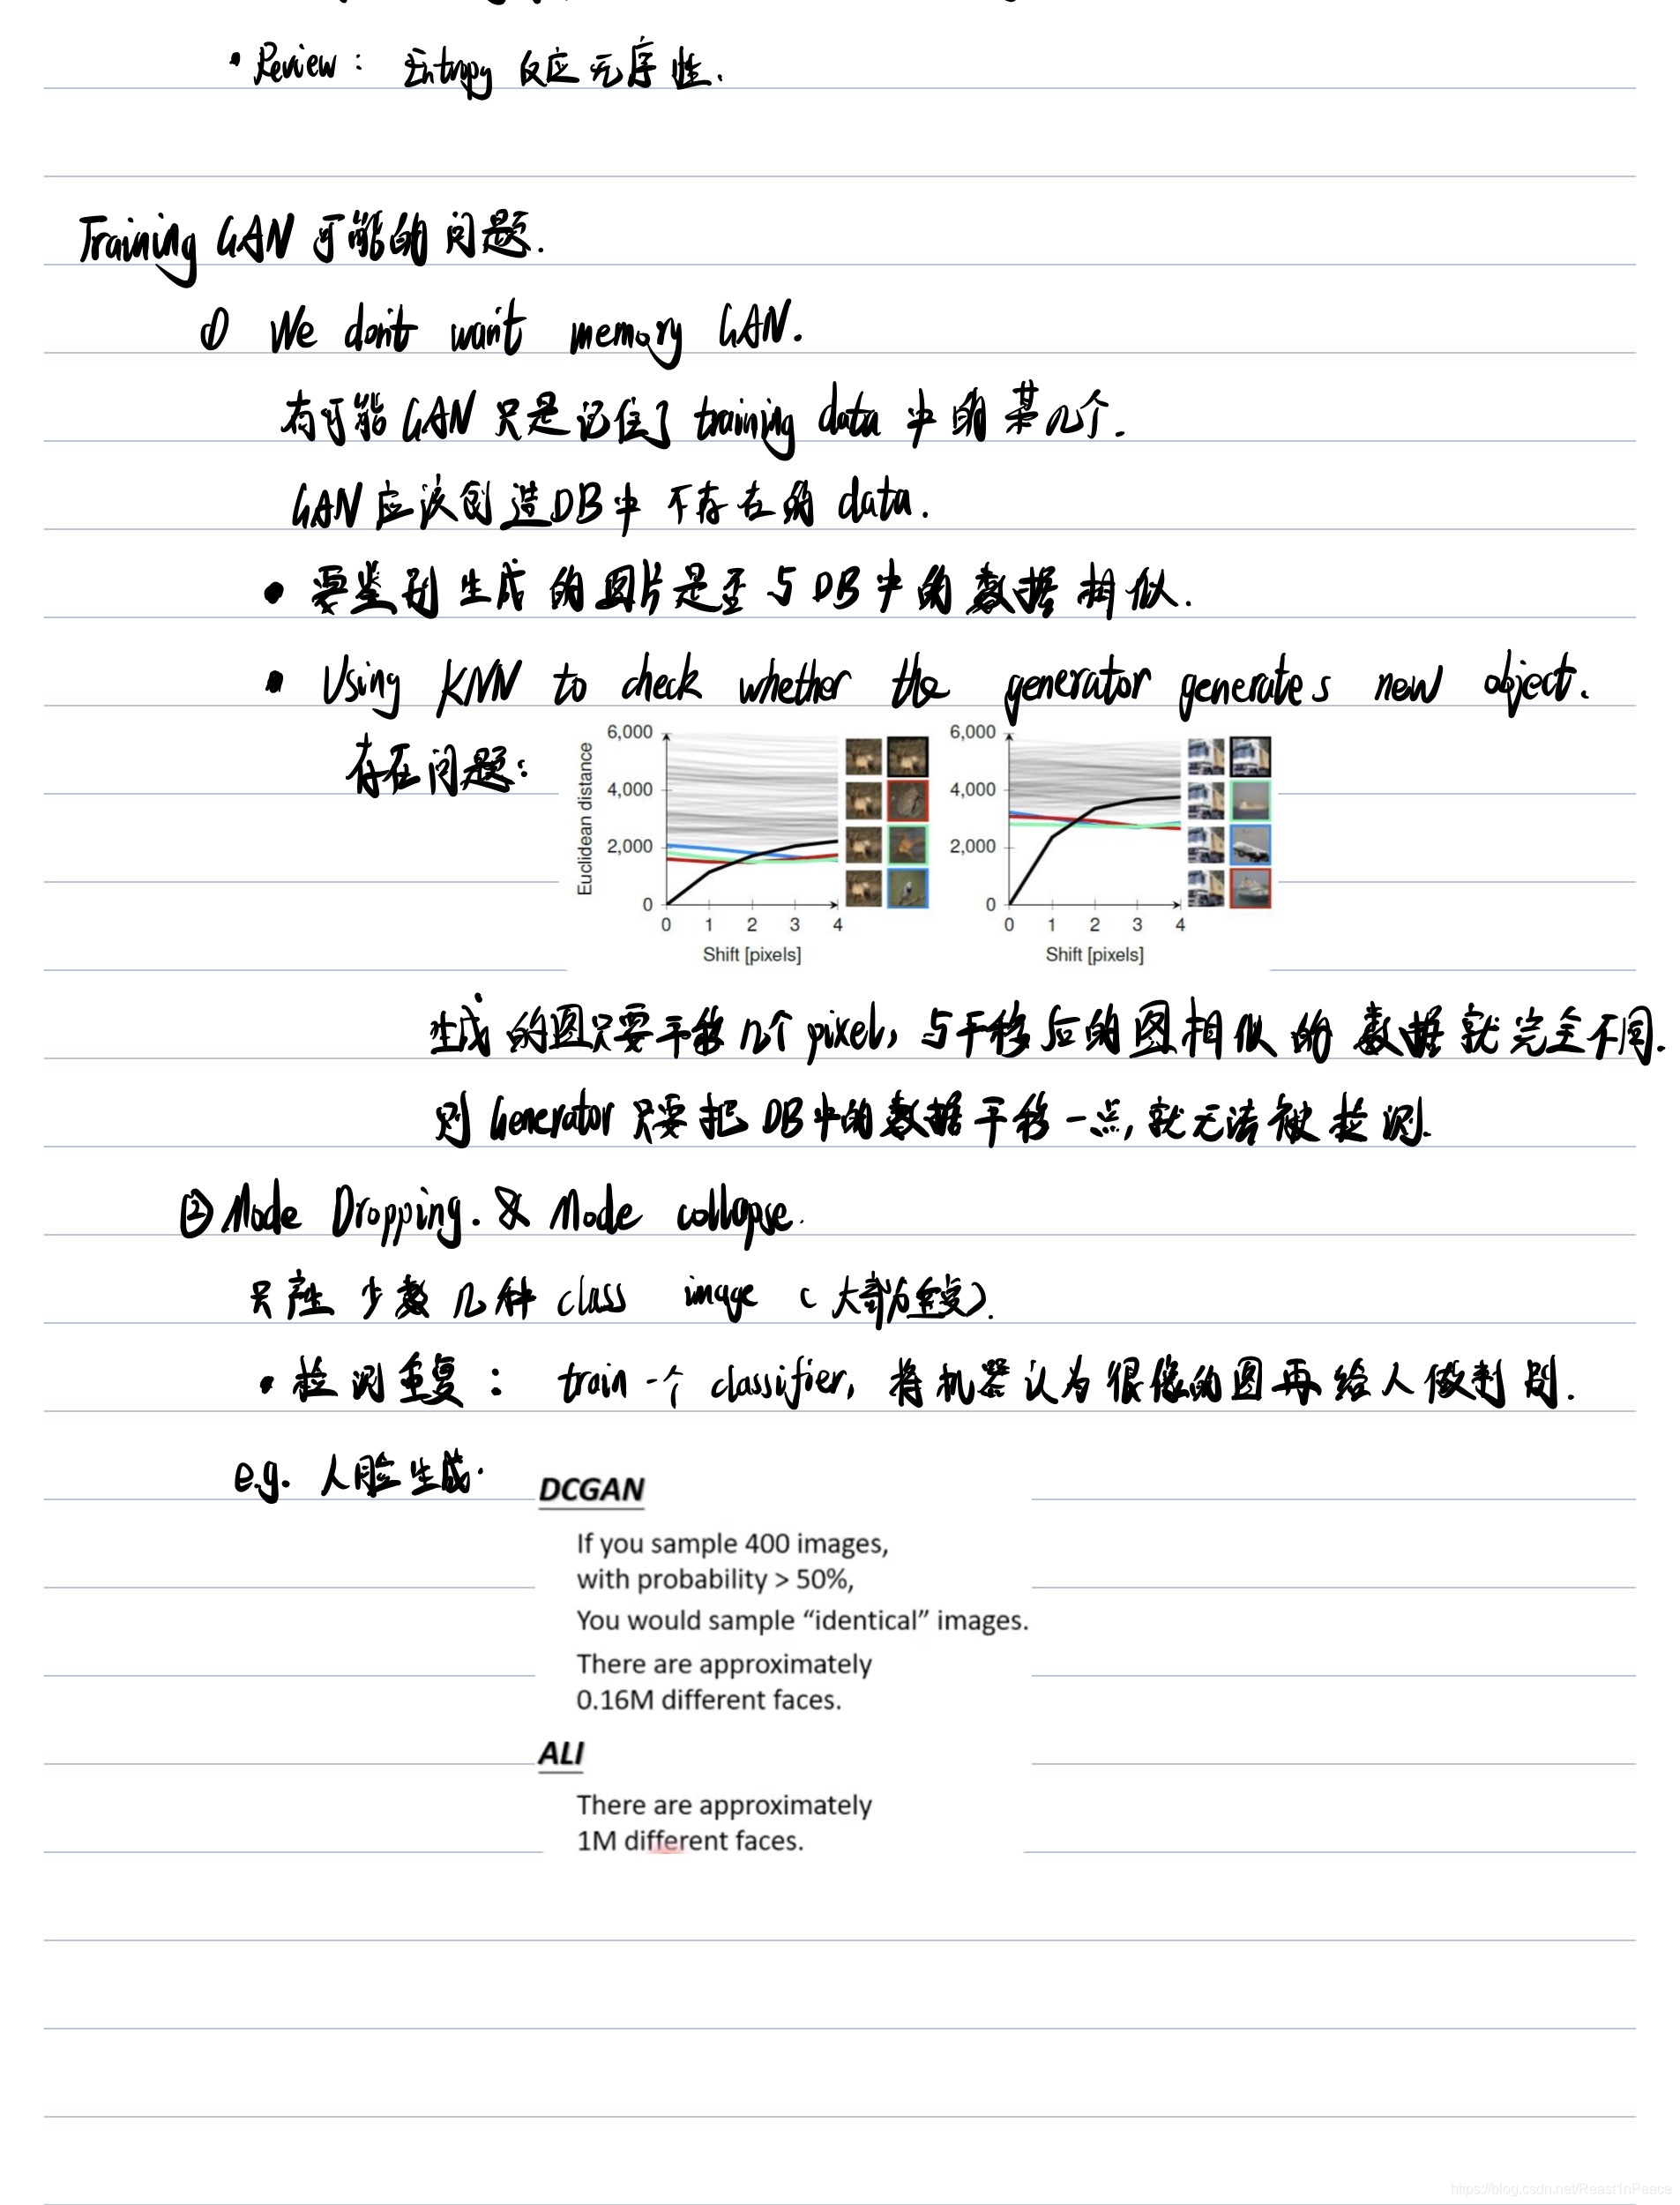 • Review: Entropy 反应无序性.
Training GAN 可能的问题.
① We don't want memory GAN.
有可能 GAN 只是记住了 training data 中的某几个.
GAN 应该创造DB中不存在的 data.
• 要鉴别生成的图片是否与DB中的数据相似.
• Using KNN to check whether the generator generates new object.
存在问题:
Euclidean distance
6,000
4,000
2,000
0
0 1 2 3 4
Shift [pixels]
6,000
4,000
2,000
0
0 1 2 3 4
Shift [pixels]
生成的图只要平移几个 pixel, 与平移后的图相似的数据就完全不同.
则 Generator 只要把 DB中的数据平移一点, 就无法被检测.
② Mode Dropping. & Mode collapse.
只产生少数几种 class image (大部为重复).
• 检测重复: train 一个 classifier, 将机器认为很像的图再给人做判别.
e.g. 人脸生成.
DCGAN
If you sample 400 images,
with probability > 50%,
You would sample “identical” images.
There are approximately
0.16M different faces.
ALI
There are approximately
1M different faces.
https://blog.csdn.net/Reast1nPeace